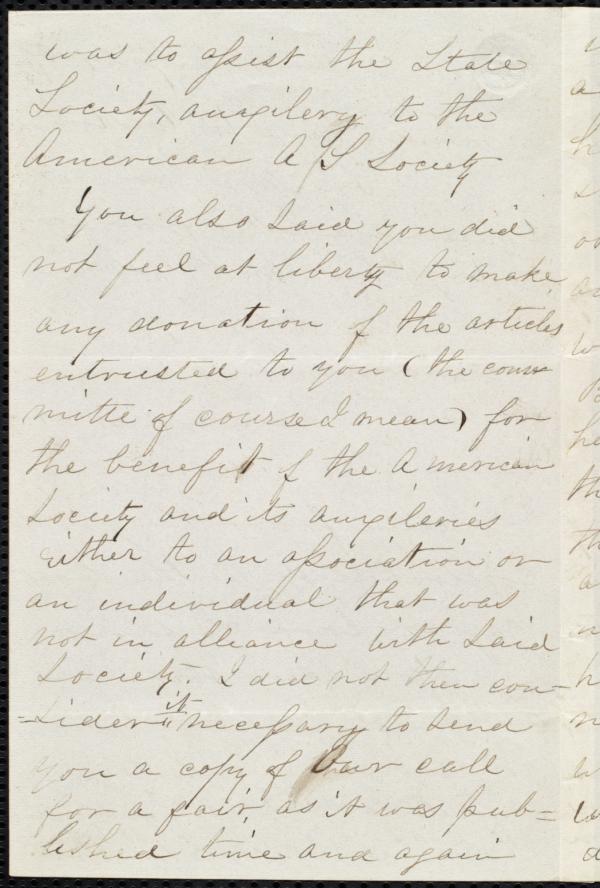 was to assist the State
Society, auxilery to the
American A S Society
You also said you did
not feel at liberty to make
any donation of the articles
entrusted to you (the com-
mitte of course I mean) for
the benefit of the American
Society and its auxileries
either to an association or
an individual that was
not in alliance with said
Society. I did not then con-
=sider it necessary to send
you a copy of our call
for a fair, as it was pub=
lished time and again